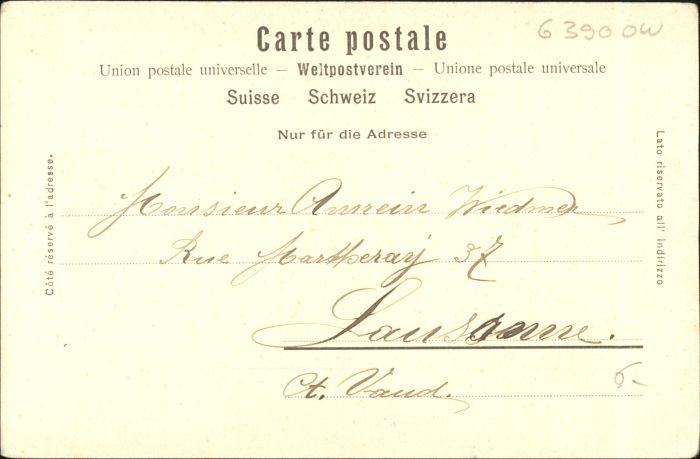 G 3900W
Carte postale
Union postale universelle – Weltpostverein – Unione postale universale
Suisse Schweiz Svizzera
Nur für die Adresse
Côté réservé à l'adresse.
Lato riservato all' indirizzo
Monsieur Amrein Wiedmer
Rue Martheray 37
Lausanne.
Ct. Vaud.
6.-